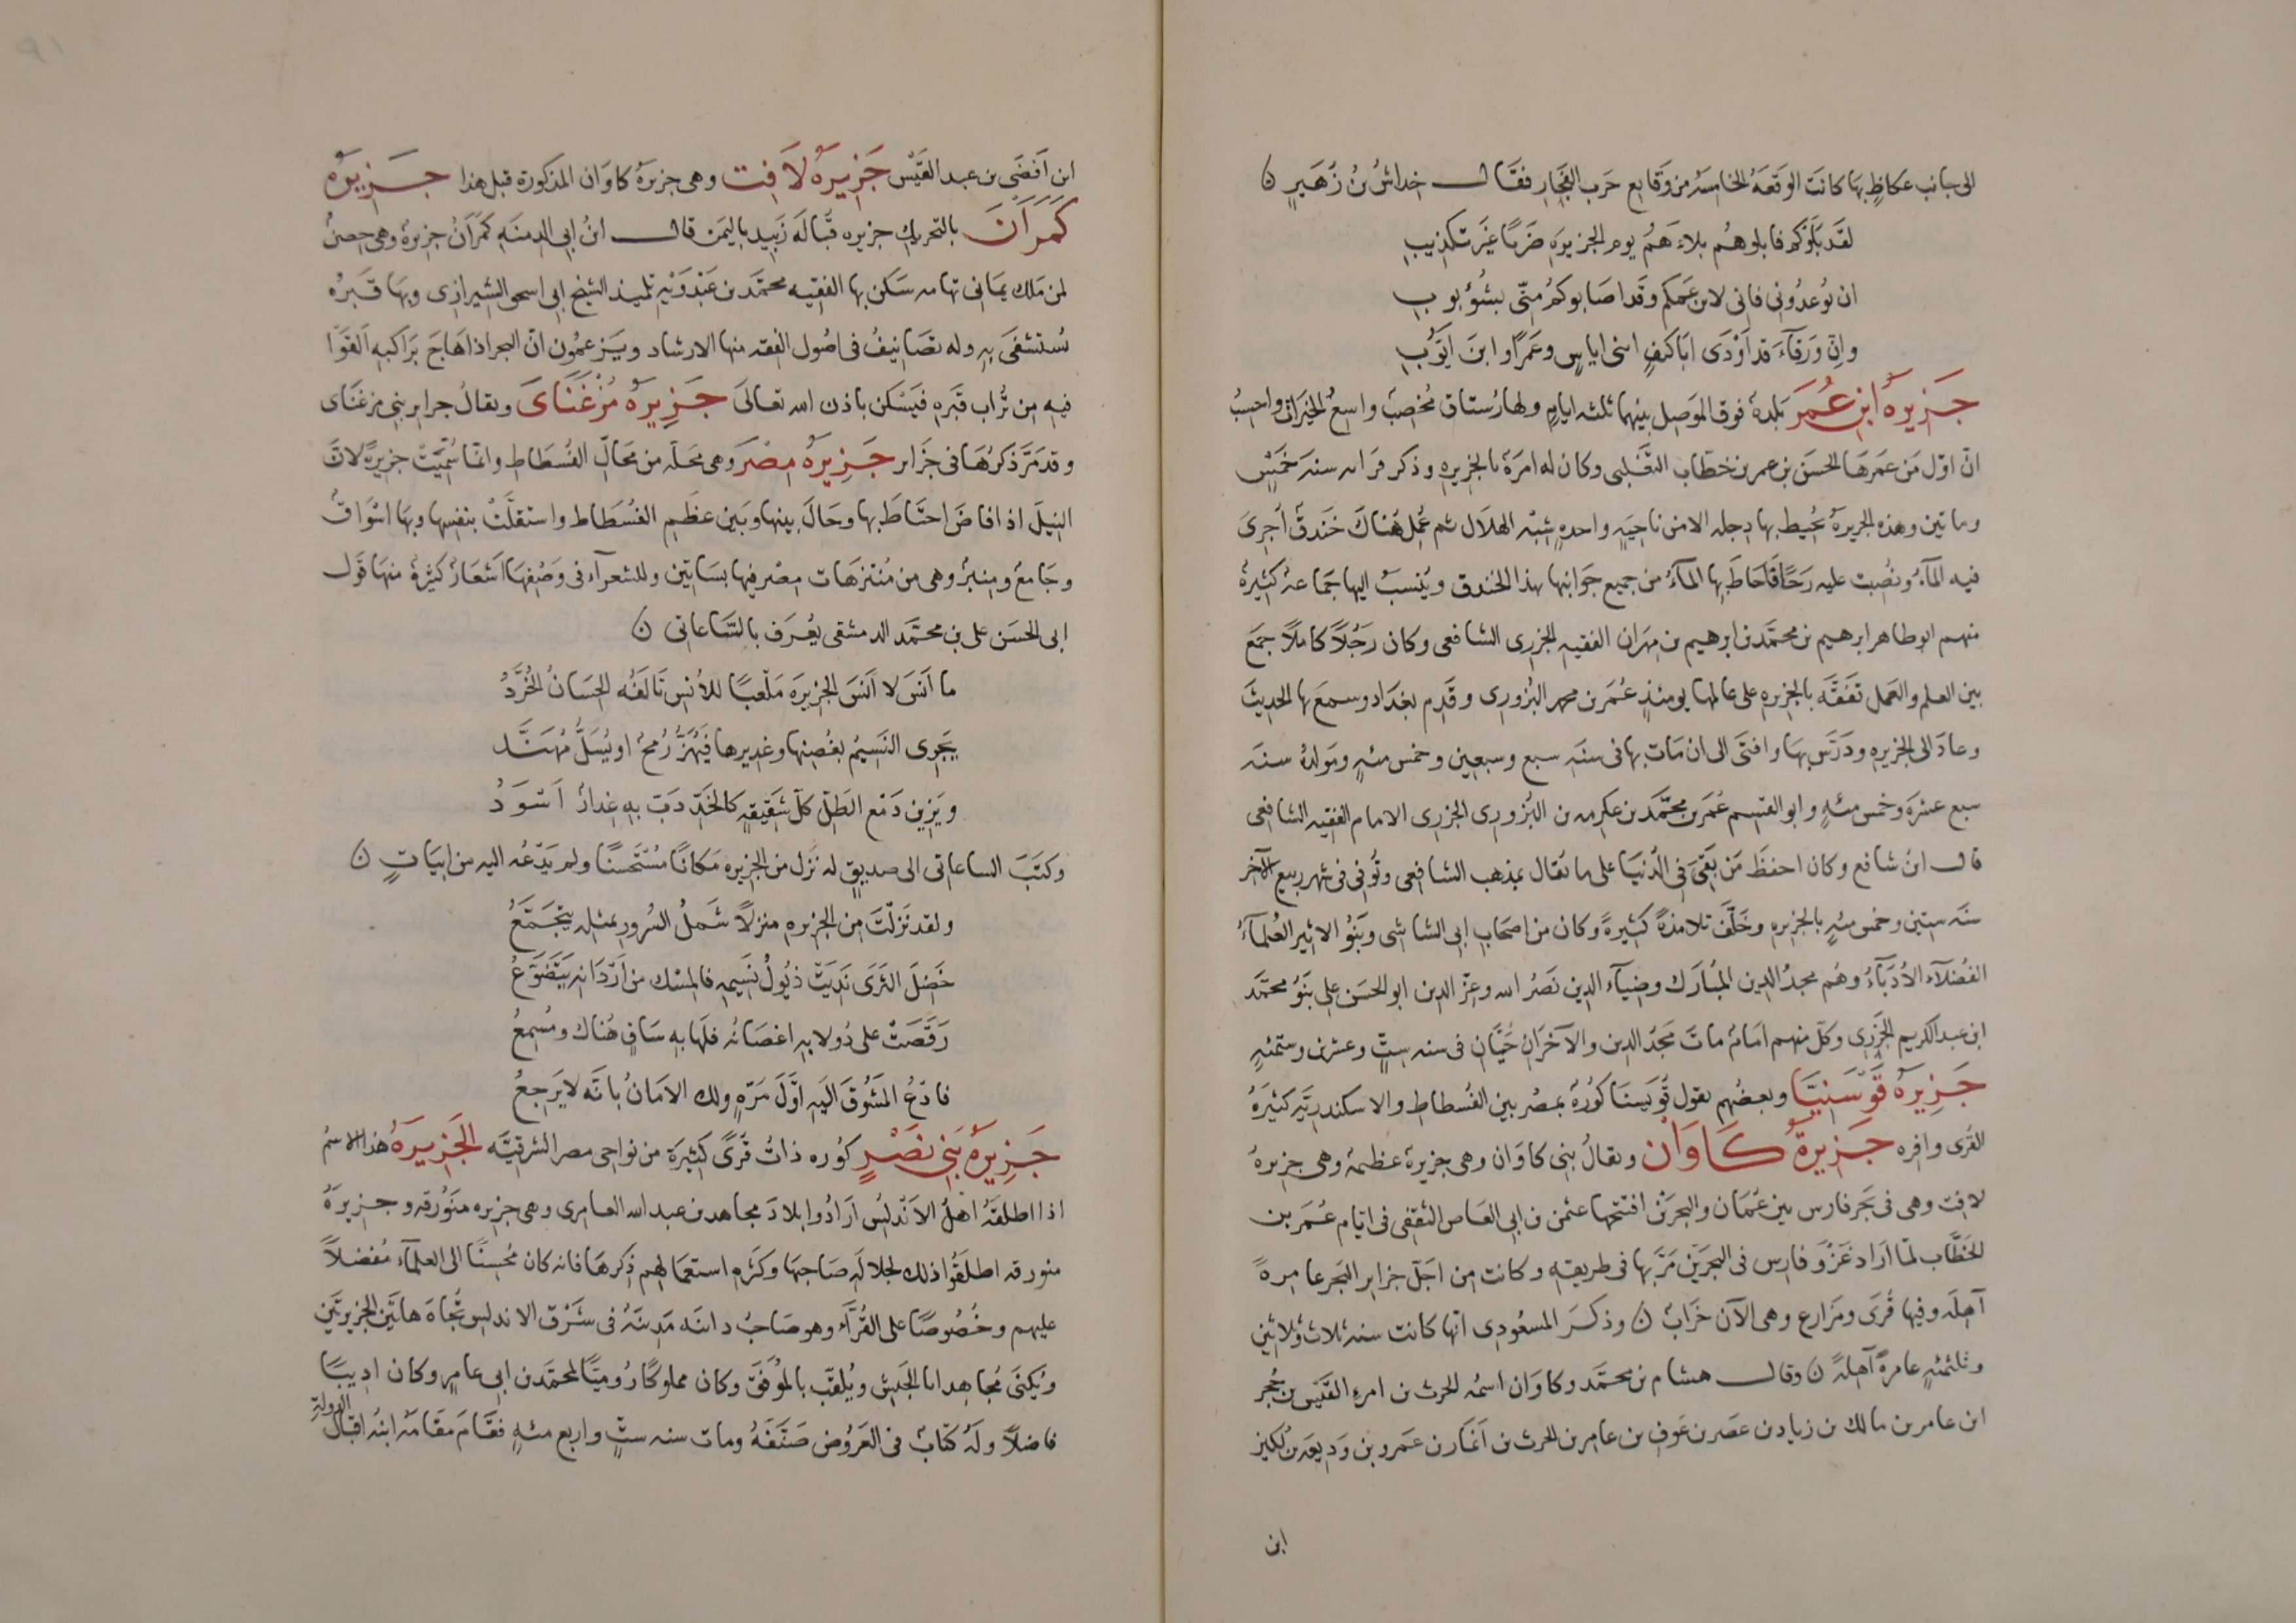 الى جانب عكاظٍ بها كانت الوقعَة الخامسَة من وَقايع حَرب الفِجَارِ فقَال خداشُ بنُ زُهَيرٍ ن
لقَد بَلَوكُم فابلوهُم بلاءَهُم يوم الجزيرَةِ ضَربًا غيَر تكذيبِ
ان تُوعدُونى فانى لابن عَمكم وقَد اصَابوكمُ منّى بشُؤبوبِ
وانّ وَرقآءَ قد اَرْدَى ابَا كنفٍ ابنى اياسٍ وعَمرًا وابنَ ايّوبِ
جَزيرَهُ ابن عُمَرَ بَلدة فوق المَوصِل بينهما ثلثه ايامٍ ولها رُستاق مُخصِبٌ واسعُ الخيَراتِ واحسِبُ
انّ اوّل مَن عَمَرهَا الحسَن بن عمر بن خطّاب التَّغلبى وكان له امرَة بالجزيرهِ وذكر قرابه سنة خمَسٍ
وماتين وهذه الجزيرةُ تُحيط بها دجله الا من ناحيَةٍ واحدهٍ شبْه الهلَال ثم عُمِل هُناكَ خَندقٌ اُجرِىَ
فيه المآءُ ونُصِبت عليه رَحًا فاَحَاطَ بها المآءُ من جميع جَوانبها بهذا الخندق ويُنسَبُ اليها جَماعةٌ كثيرةٌ
منهم ابو طاهر ابرهيم بن محمَّد بن ابرهيم بن مهرَان الفقيه الجزرى الشافعى وكان رَجُلاً كاملًا جمَع
بين العلم والعَمل تفَقَّه بالجزيره على عالمها يومئذٍ عُمَر بن محمد البُزورى وقَدِم بغدَاد وسمعَ بها الحديثَ
وعادَ الى الجزيرهِ ودَرّسَ بهَا وافتَى الى ان مَات بها فى سنَه سبع وسبعين وخمس مئهٍ ومَولدُهُ سنَه
سبع عشرَة وخمس مئهٍ وابو القسِم عُمَر بن محمَّد بن عكرمه بن البُزورى الجزرى الامام الفقيه الشافعى
قال ابنُ شافع وكان احفظَ مَن بَقِىَ فى الدُنيَا على ما يُقال بمذهب الشافعى وتُوفى فى شهر ربيع الآخر
سنَه ستين وخمس مئهٍ بالجزيرهِ وخَلَّفَ تلامذةً كثيرةً وكان من اصحَابِ ابى الشاشى وبَنُو الاثير العُلمآءُ
الفُضلآء الأدَبآءُ وهُم مجدُ الدين المبُارَك وضِيآء الدين نَصْر الله وعزّ الدين ابو الحسَن على بنوُ محمَّد
ابن عبد الكريم الجَزرى وكلّ منهم امَامٌ ماتَ مَجدُ الدين والآخرَانِ حَيَّانِ فى سنه ستٍّ وعشرين وستمئهٍ
جَزِيرَة قَوْسَنيَّا وبعضُهم يقول قُوَيسنَا كوُرَةٌ بمصْر بين الفُسطاط والاسكندريّه كثيَرةُ
القُرى وَافِرَه جَزِيرةُ كَاوَانْ ويقالُ بَنى كاوَان وهى جزيرة عظيمة وهى جزيرةُ
لافِت وهى فى بَحر فارس بين عُمَان والبحرَين افتتحها عثمٰن بن ابى العَاص الثقفى فى ايّام عُمَر بن
الخطَّاب لمّا ارَاد غَزْوَ فارِس فى البَحرَيْن مَرّ بها فى طريقهِ وكانت من اجَلّ جزاير البَحر عامرةً
آهله وفيها قُرَى ومَزارع وهى الآن خَرابٌ ن وذكرَ المسعُودِى انّها كانت سنه ثلاث وثلاثين
وثلثمئهٍ عامرةً آهلةً ن وقال هشام بن محمَّد وكاوَان اسمُه الحرث بن امرءِ القَيْس بن حُجر
ابن عامر بن مالك بن زياد بن عصَر بن عَوفِ بن عامِر بن الحرث بن اَنمَار بن عَمرو بن وَديعَه بن لُكيز
ابن
ابن اَفصَى بن عبد القَيْس جَزِيرَهُ لَافِت وهى جزيرَهُ كاوَان المذكورة قبل هذا جَزيرَهُ
كَمَرَانَ بالتحريك جزيره قبَالَة زَبيد باليَمَن قال ابنُ ابى الدمنَهِ كَمَرَانُ جزيرةٌ وهى حِصنٌ
لمن مَلك يَمانى تهامه سَكن بها الفقيه محمَّد بن عَبْدوَيْهِ تلميذ الشيخ ابى اسحٰق الشيرازى وبهَا قَبرُه
يُستشفَى بهِ وله تصَانيفُ فى اصُول الفقه منها الارشاد ويَزعمُون انّ البحر اذا هَاجَ بَرَاكبهِ القوا
فيهِ من تُراب قَبرِه فيَسْكن باذن الله تعالىَ جَزِيرَهُ مَزْغَنَاىَ ويقالُ جزاير بنى مزغنَاى
وقد مَرَّ ذكرُهَا فى جَزَاير جَزِيرَهُ مِصْرَ وهى مَحَلَّه من محَالّ الفُسطَاط وانمّا سُمّيَتْ جزيرةً لانّ
النيلَ اذا فاضَ احتَاطَ بها وحَالَ بينها وبَين عظَمِ الفُسْطَاط واستقَلَّتْ بنفسِها وبهَا اسْوَاقٌ
وجَامعٌ ومِنبرٌ وهى من مُنتزهَات مِصْر فيها بسَاتين وللشعرآء فى وصْفِهَا اشعَارٌ كثيرَة منهَا قَول
ابى الحسَن على بن محمَّد الدمشقى يُعُرَف بالسَّاعاتى ن
ما اَنسَ لا اَنسَ الجزيرَه مَلعَبًا للأنسِ تَالَفُه الحِسَانُ الخُرَّدُ
يَجرِى النَسيُم بغُصنِها وغديرها فيُهَزُّ رُمحٌ او يُسَلُّ مُهَنَّد
ويَزِين دَمْع الطَلّ كلّ شَقيقةٍ كالخَدّ دَبّ بهِ عِذَارٌ اَسْوَدُ
وكتَبَ الساعاتى الى صديقٍ له نزَل من الجزيره مَكانًا مُسْتحَسنًا ولم يَدْعُه اليه من ابيَاتٍ ن
ولقد نَزلْتَ مِن الجزيرهِ منزلًا شَملُ السُرور بمثلهِ يتَجَمَّعُ
خَضِلَ الثرَى نَديَتْ ذيُولُ نَسيمهِ فالمسْك من اَرْدَانهِ يَتَضَوَّعُ
رَقَصَتْ على دُولابهِ اغصَانُه فلَها بهِ سَاقٍ هُناك ومُسمِعُ
فادْعُ المَشُوقَ اليَهِ اوَّلَ مَرّةٍ ولك الامَانُ بانّه لا يَرجِعُ
جَزِيرَهُ بَنى نصْرٍ كوُره ذاتُ قُرًى كثيَرة من نواحى مصر الشرقيَّه الجَزِيرَهُ هذا الاسمُ
اذا اطلقَهُ اهلُ الاَندلُسِ ارَادُوا بلادَ مجاهد بن عبد الله العامرى وهى جزيره مَنَوُرقه وجزيرَةُ
ميورقه اطلقُوا ذلك لجلالَةِ صَاحبهَا وكثرهِ استعمالهم ذِكرهَا فانه كان مُحسنًا الى العلمآء مُفضلًا
عليهم وخُصُوصًا على القُرَّآء وهو صَاحبُ دانيَه مَدينَهٌ فى شَرْق الاندلس تُجاهَ هاتيَن الجزيرتَين
ويُكنَى مُجاهِد ابا الجيَش ويُلقّب بالمُوَفَقّ وكان مملوكًا رُوميّا لمحمَّد بن ابى عامرٍ وكان اديبًا
فاضلًا ولَهُ كتابٌ فى العَروُض صَنَّفَهُ ومات سنه ستٍّ واربع مئهٍ فقَامَ مقَامَه ابنهُ اقبَالُ
الدولةِ